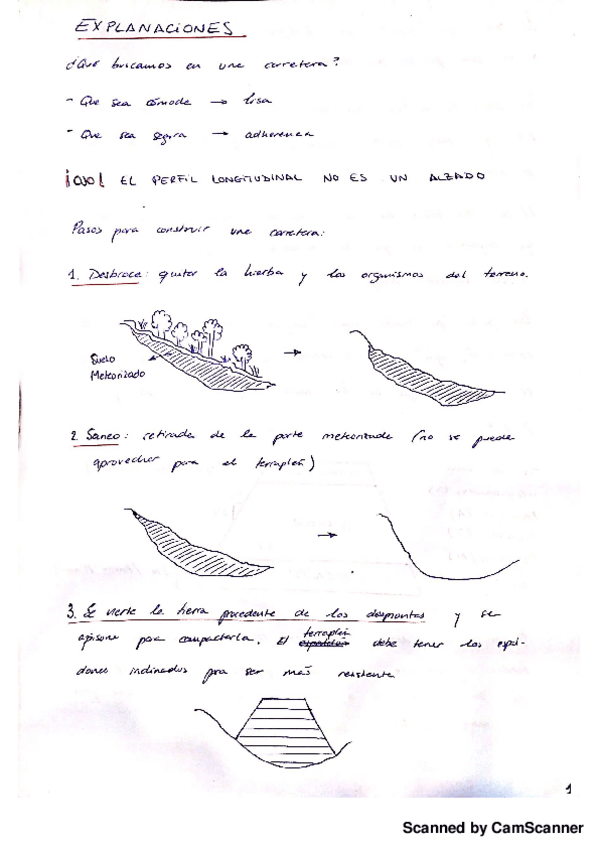 EXPLANACIONES
¿Qué buscamos en una carretera?
- Que sea cómoda → lisa
- Que sea segura → adherencia
¡OJO! EL PERFIL LONGITUDINAL NO ES UN ALZADO
Pasos para construir una carretera:
1. Desbroce: quitar la hierba y los organismos del terreno.
Suelo
Meteorizado
2. Saneo: retirada de la parte meteorizada (no se puede
aprovechar para el terraplén)
3. Se vierte la tierra procedente de los desmontes y se
apisona para compactarla. El terraplén debe tener los
inclinados para ser más resistente
1
Scanned by CamScanner